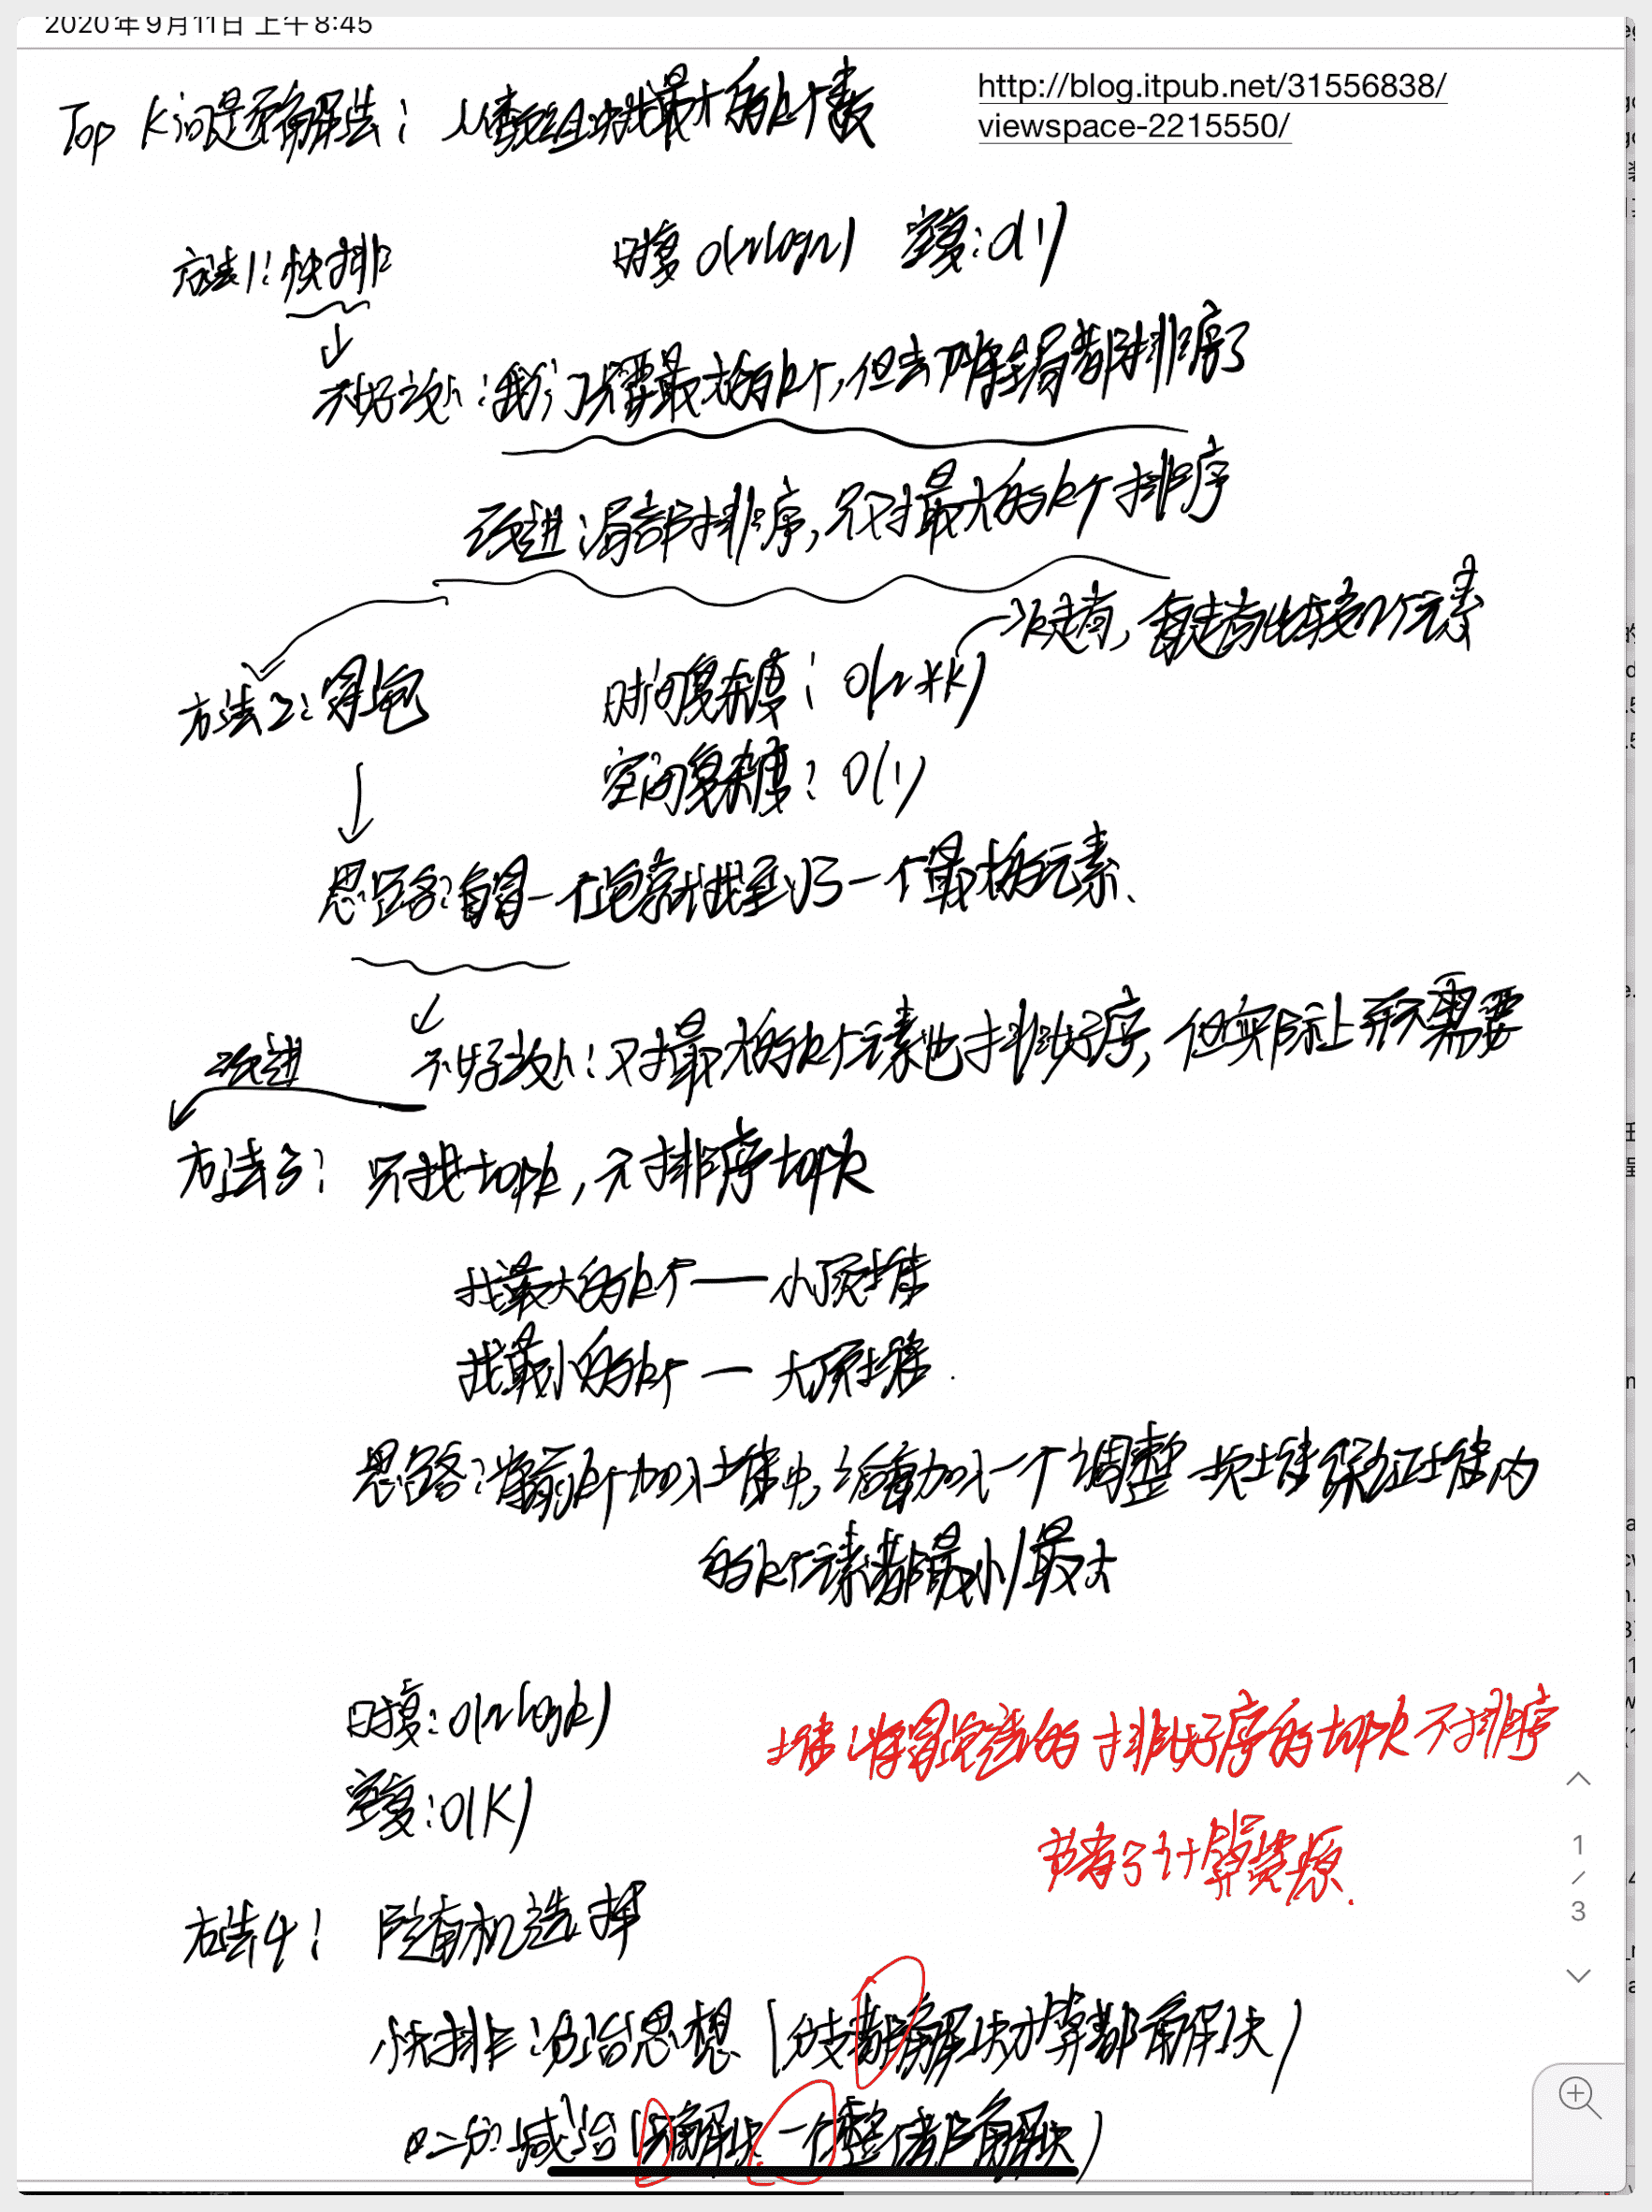 2020年9月11日 上午8:45
Top K问题求解法：从数组中找最大的k个数
http://blog.itpub.net/31556838/
viewspace-2215550/
方法1：快排 时复 O(nlogn) 空复：O(1)
不好之处：我们只需要最大的k个，但却将全局都排序了
改进：局部排序，只对最大的k个排序
k趟，每趟比较n个元素
方法2：冒泡 时间复杂度：O(n*k)
空间复杂度：O(1)
思路：每冒一个泡就找到了一个最大的元素、
改进 不好之处：对最大的k个元素也排好序，但实际上并不需要
方法3：只找topk，不排序topk
找最大的k个——小顶堆
找最小的k个—大顶堆.
思路：将前k个加入堆中，后每加入一个调整一次堆保证堆内
的k个元素都最小/最大
时复：O(nlogk)
空复：O(K)
堆：将冒泡法的排好序的topk不排序
节省了计算资源.
方法4：随机选择
快排：分治思想（分支都解决才算都解决）
二分：减治（只解决一个整个都解决）
1
/
3